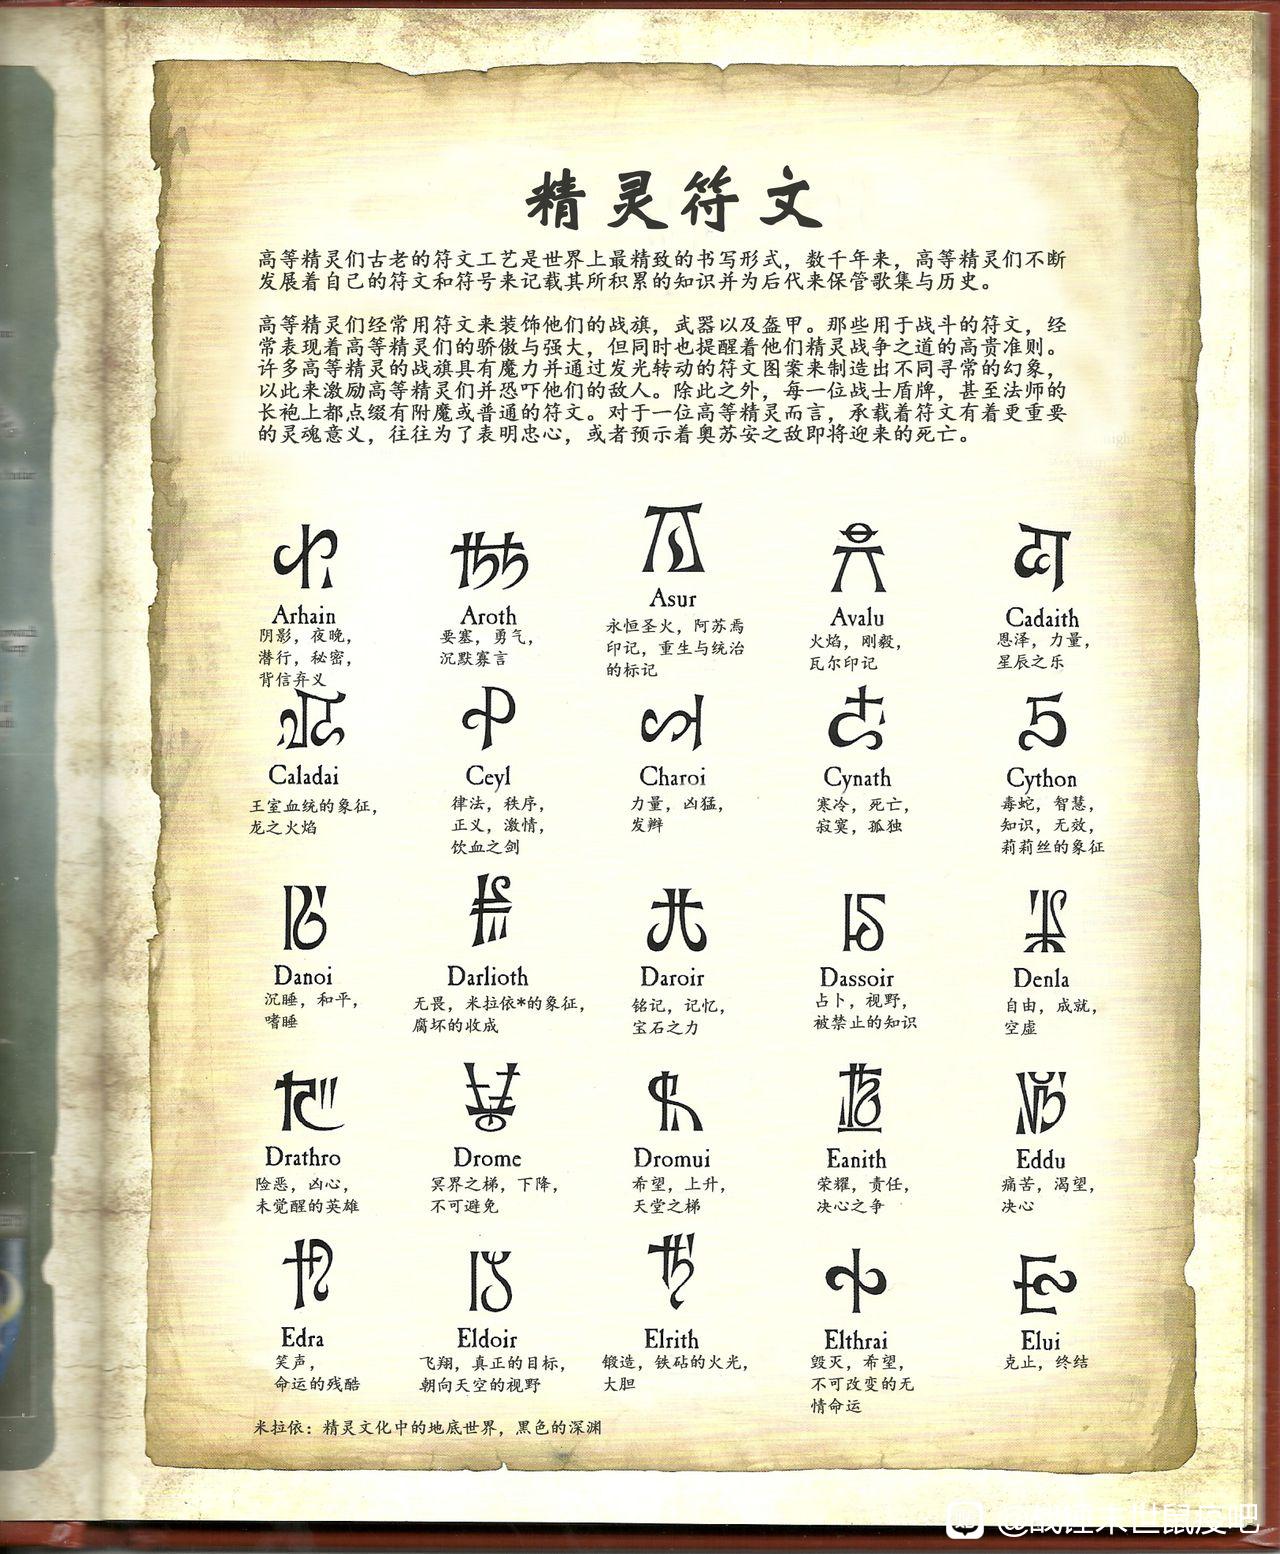 精灵符文
高等精灵们古老的符文工艺是世界上最精致的书写形式，数千年来，高等精灵们不断
发展着自己的符文和符号来记载其所积累的知识并为后代来保管歌集与历史。
高等精灵们经常用符文来装饰他们的战旗，武器以及盔甲。那些用于战斗的符文，经
常表现着高等精灵们的骄傲与强大，但同时也提醒着他们精灵战争之道的高贵准则。
许多高等精灵的战旗具有魔力并通过发光转动的符文图案来制造出不同寻常的幻象，
以此来激励高等精灵们并恐吓他们的敌人。除此之外，每一位战士盾牌，甚至法师的
长袍上都点缀有附魔或普通的符文。对于一位高等精灵而言，承载着符文有着更重要
的灵魂意义，往往为了表明忠心，或者预示着奥苏安之敌即将迎来的死亡。
Arhain
阴影，夜晚，
潜行，秘密，
背信弃义
Aroth
要塞，勇气，
沉默寡言
Asur
永恒圣火，阿苏焉
印记，重生与统治
的标记
Avalu
火焰，刚毅，
瓦尔印记
Cadaith
恩泽，力量，
星辰之乐
Caladai
王室血统的象征，
龙之火焰
Ceyl
律法，秩序，
正义，激情，
饮血之剑
Charoi
力量，凶猛，
发辫
Cynath
寒冷，死亡，
寂寞，孤独
Cython
毒蛇，智慧，
知识，无效，
莉莉丝的象征
Danoi
沉睡，和平，
嗜睡
Darlioth
无畏，米拉依*的象征，
腐坏的收成
Daroir
铭记，记忆，
宝石之力
Dassoir
占卜，视野，
被禁止的知识
Denla
自由，成就，
空虚
Drathro
险恶，凶心，
未觉醒的英雄
Drome
冥界之梯，下降，
不可避免
Dromui
希望，上升，
天堂之梯
Eanith
荣耀，责任，
决心之争
Eddu
痛苦，渴望，
决心
Edra
笑声，
命运的残酷
Eldoir
飞翔，真正的目标，
朝向天空的视野
Elrith
锻造，铁砧的火光，
大胆
Elthrai
毁灭，希望，
不可改变的无
情命运
Elui
克止，终结
米拉依：精灵文化中的地底世界，黑色的深渊